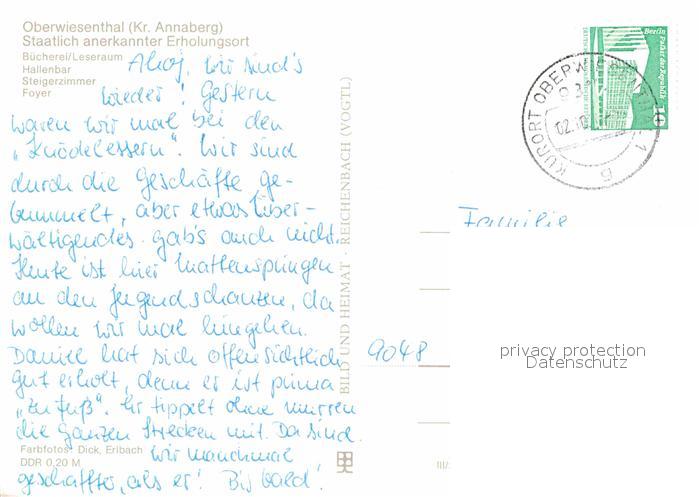 Oberwiesenthal (Kr. Annaberg)
Staatlich anerkannter Erholungsort
Bücherei/Leseraum
Hallenbar
Steigerzimmer
Foyer
Ahoj, wir sind's
wieder! Gestern
waren wir mal bei den
„Knödelessern". Wir sind
durch die Geschäfte ge-
bummelt, aber etwas Über-
wältigendes gab's auch nicht.
Heute ist hier Mattenspringen
an den Jugendschanzen, da
wollen wir mal hingehen.
Daniel hat sich offensichtlich
gut erholt, denn er ist prima
„zu Fuß". Er tippelt ohne murren
die ganzen Strecken mit. Da sind
wir manchmal
geschaffter, als er! Bis bald!
Farbfotos: Dick, Erlbach
DDR 0,20 M
BILD UND HEIMAT · REICHENBACH (VOGTL)
III/
Berlin
Palast der Republik
10
KURORT OBERWIESENTHAL 1
02.10
Familie
9048
privacy protection
Datenschutz